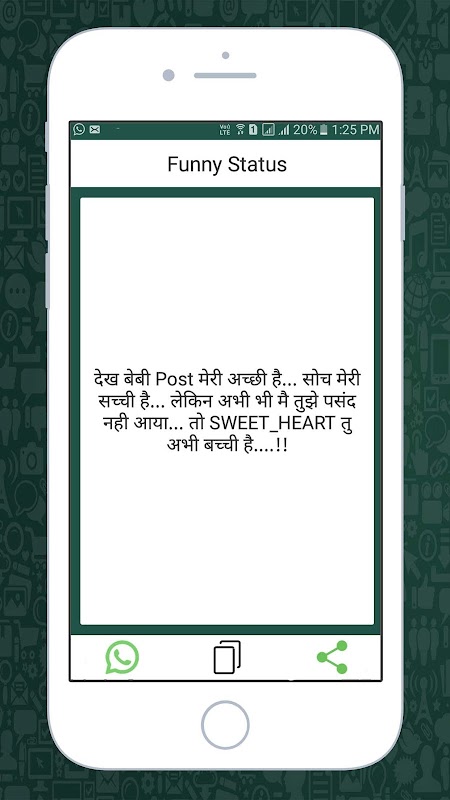 VoLTE 1 20% 1:25 PM
Funny Status
देख बेबी Post मेरी अच्छी है... सोच मेरी
सच्ची है... लेकिन अभी भी मै तुझे पसंद
नही आया... तो SWEET_HEART तु
अभी बच्ची है....!!